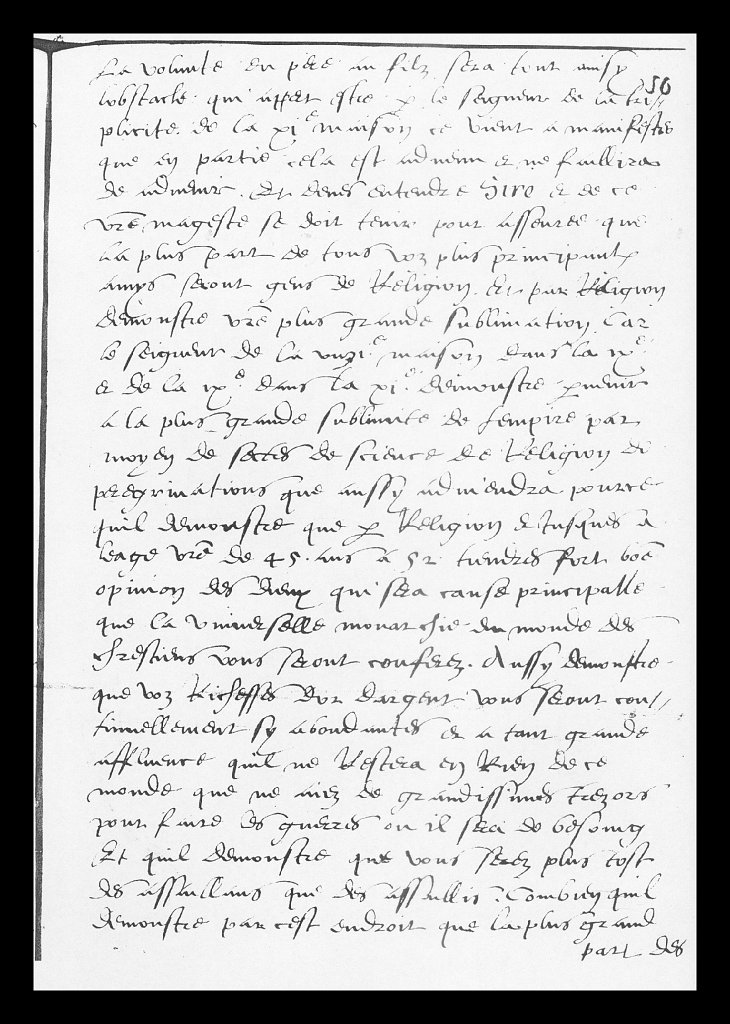 La volunte du pere au filz sera tout ainsy
50
lobstacle qui appert estre p le seigneur de la tri-
plicite de la xj.e maison ce vient a manifester
que en partie cela est advenu et ne faillira
de advenir. Et deves entendre Siro et de ce
vre mageste se doit tenir pour asseuree que
la plus part de tous voz plus principaulx
amys seront gens de Religion. Et par Religion
demonstre vre plus grande sublimation. Car
le seigneur de la viije maison dans la ix.e
et de la ix.e dans la xj.e demonstre pvenir
a la plus grande sublimite de lempire par
moyen de sectes de science de Religion de
peregrinations que aussy adviendra pource
quil demonstre que p Religion et Jusques a
leage vre de 45. ans a 52 tiendres fort bone
opinion des dieux qui sera cause principalle
que la universelle monarchie du monde des
chrestiens vous seront conferez. Aussy demonstre
que voz Richesses dor dargent vous seront con-
tinuellement sy abondantes et a tant grande
affluence quil ne Restera en Rien de ce
monde que ne aiez de grandissimes trezors
pour faire les guerres ou il sera de besoing
Et quil demonstre que vous serez plus tost
des assaillans que des assallis. Combien quil
demonstre par cest endroit que la plus grand
part des